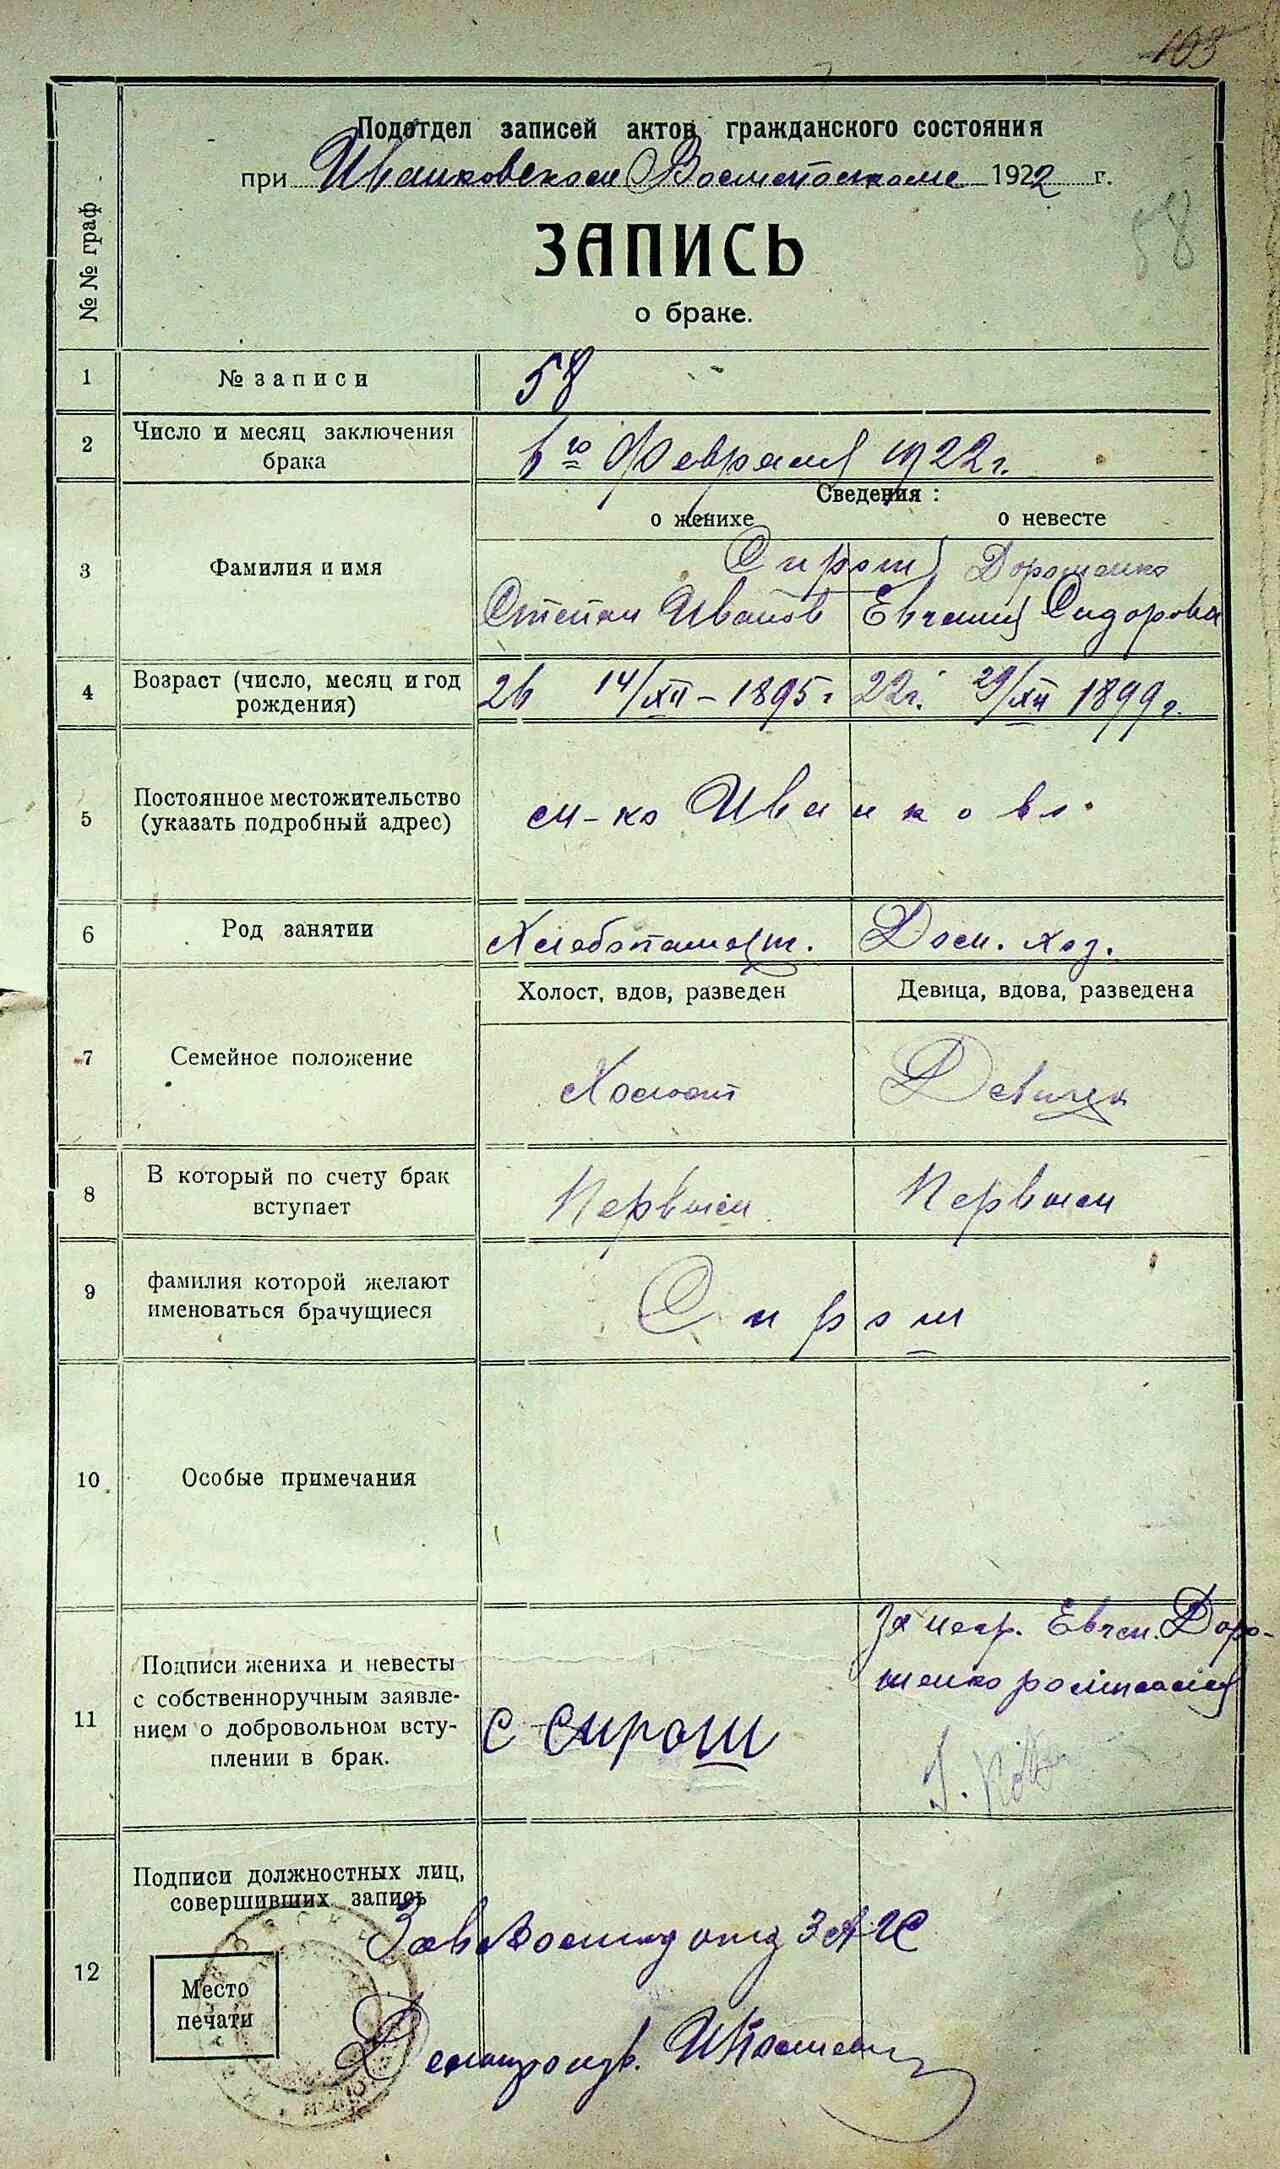 103
Подотдел записей актов гражданского состояния
при Иванковском Волисполкоме 1922 г.
58
ЗАПИСЬ
о браке.
№ № граф
1 № записи 58
2 Число и месяц заключения брака 6го Февраля 1922 г.
Сведения:
о женихе о невесте
3 Фамилия и имя
Сирош Дорошенко
Степан Иванов Евгения Сидорова
4 Возраст (число, месяц и год рождения) 26 14/XII – 1895 г 22 г. 29/XII 1899 г.
5 Постоянное местожительство (указать подробный адрес) м-ко Иванков
6 Род занятии Хлебопашест. Дом. хоз.
Холост, вдов, разведен Девица, вдова, разведена
7 Семейное положение Холост Девица
8 В который по счету брак вступает Первый Первый
9 фамилия которой желают именоваться брачущиеся Сирош
10 Особые примечания
11 Подписи жениха и невесты
с собственноручным заявле-
нием о добровольном всту-
плении в брак.
С Сирош
За негр. Евген. Доро-
шенко росписался
12 Подписи должностных лиц,
совершивших запись
Место
печати
Зав отд ЗАГС